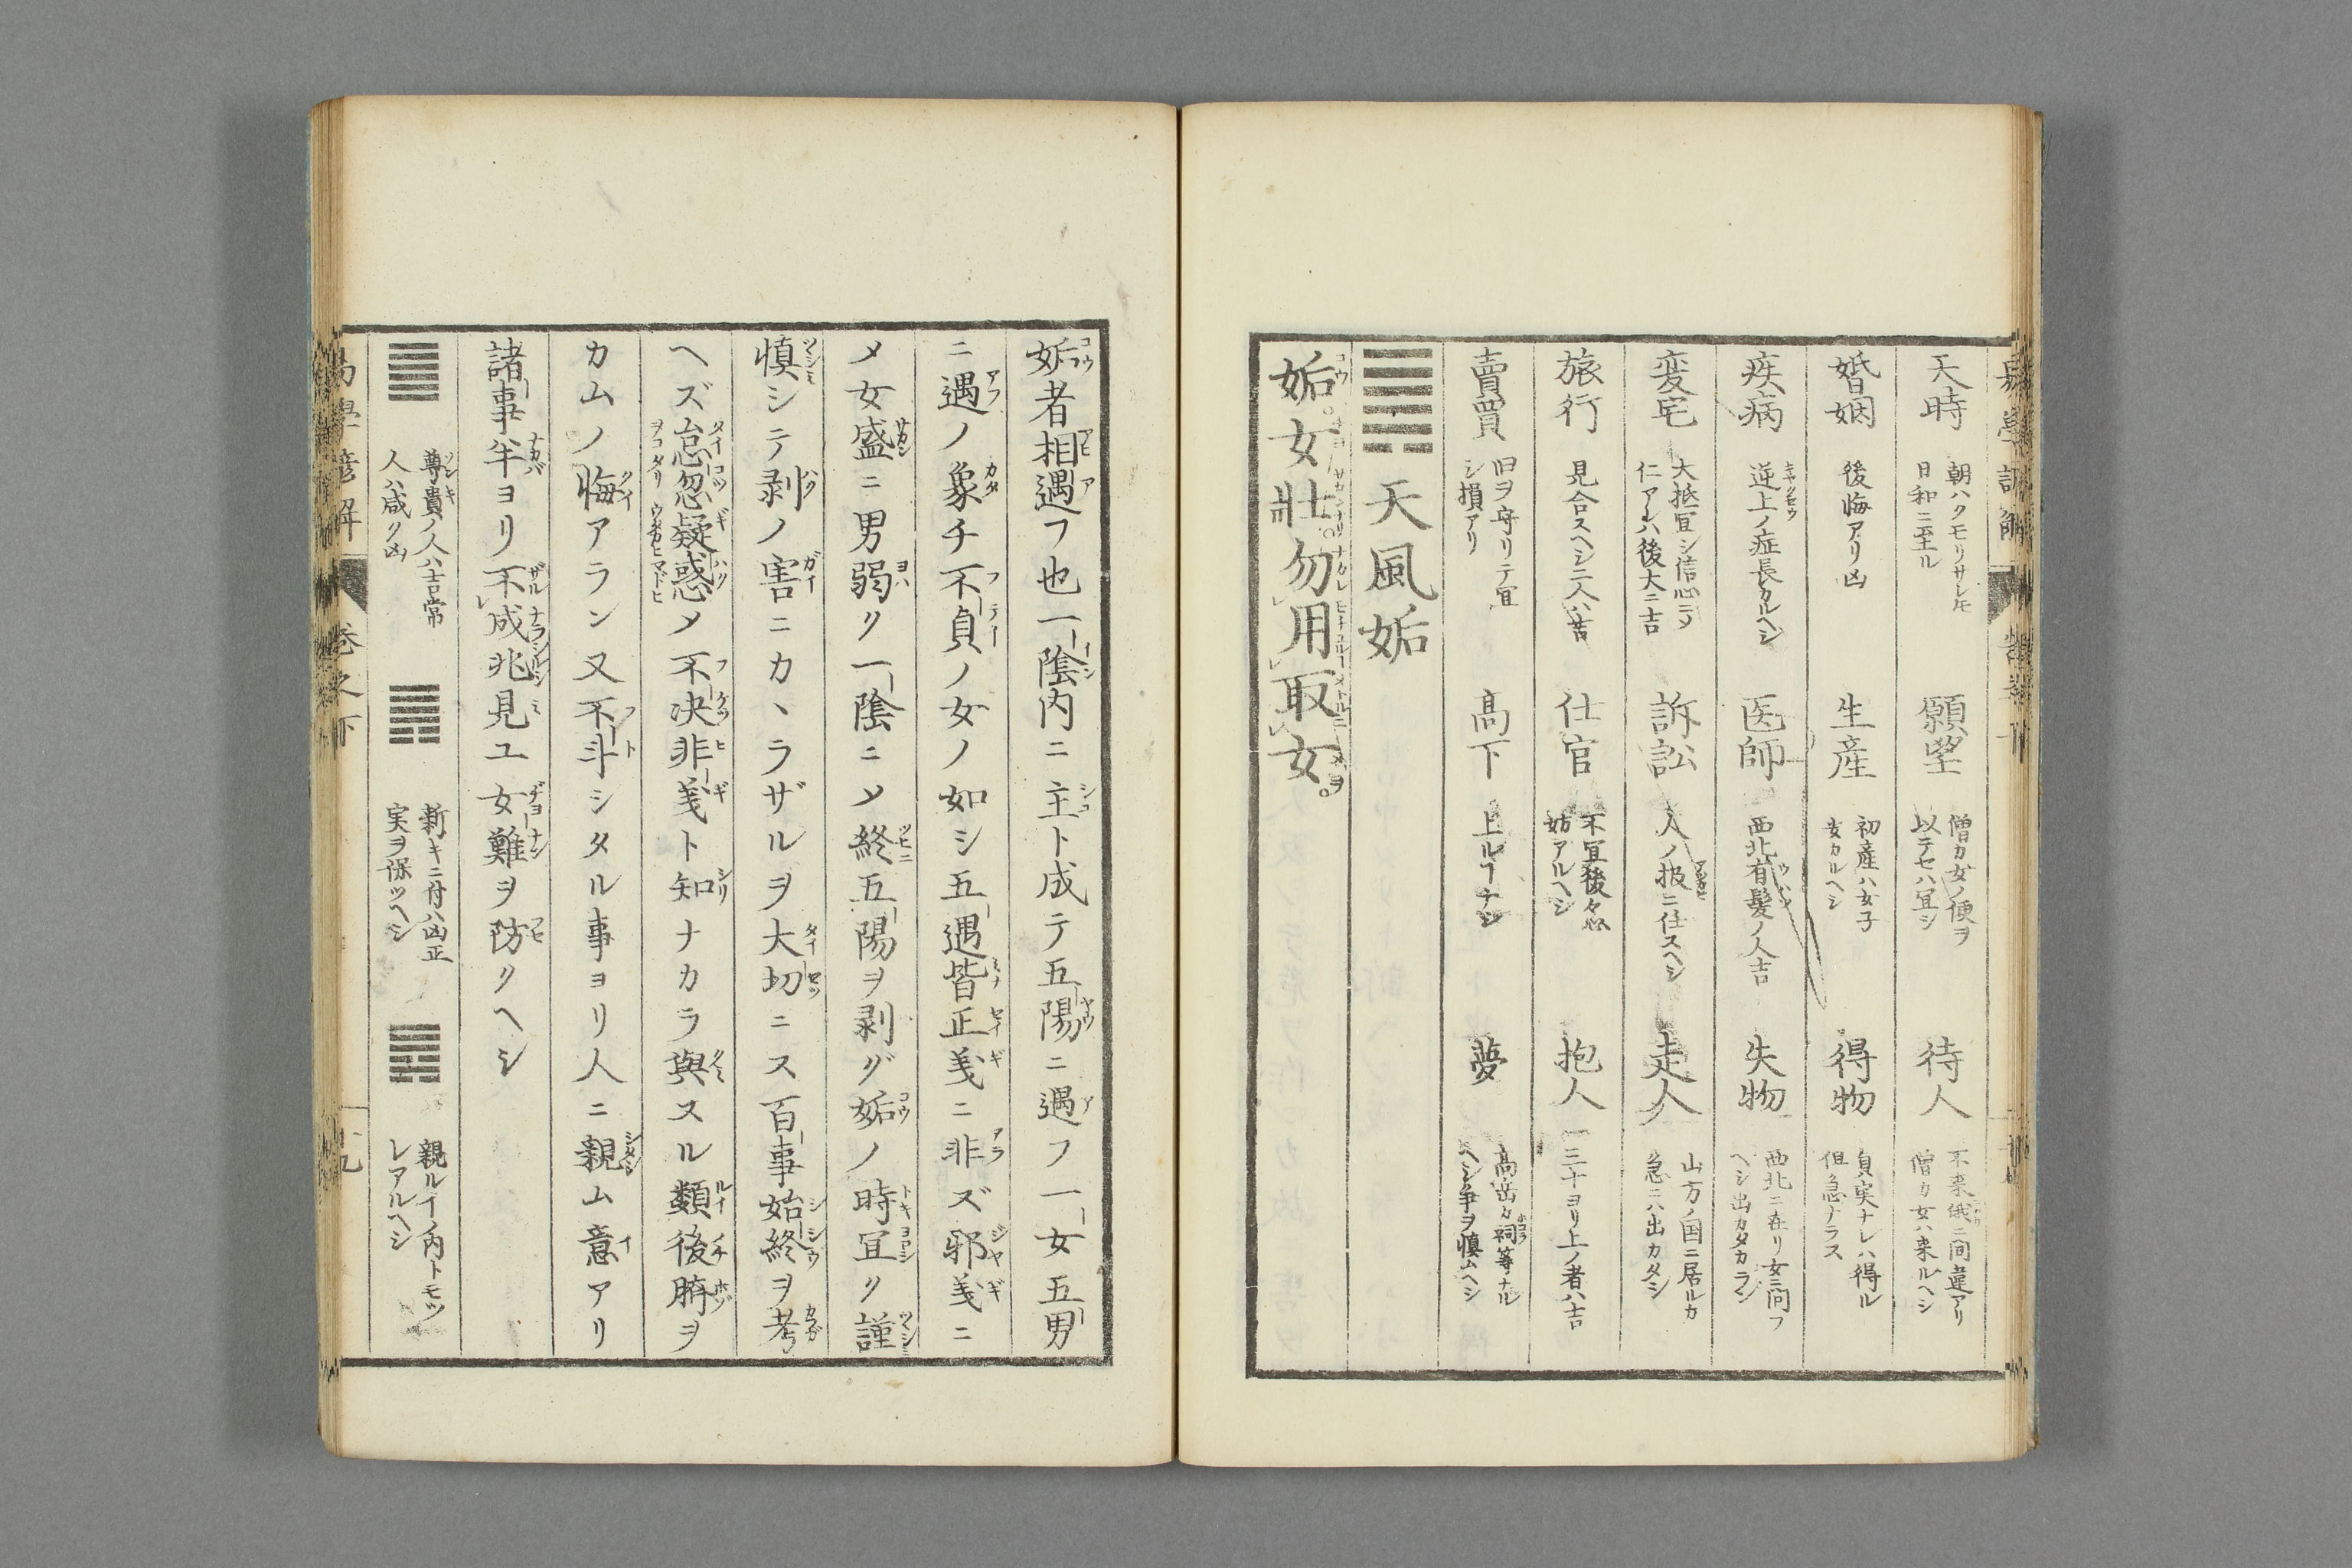 天時 朝ハクモリサレ𪜈日和ニ至ル 願望 僧カ女ノ便ヲ以テセハ冝シ 待人 不来俄ニ間違アリ僧カ女ハ来ルヘシ
婚姻 後悔アリ凶 生産 初産ハ女子安カルヘシ 得物 負実ナレハ得ル但急ナラス
疾病 逆上ノ症長カルヘシ 医師 西北有髪ノ人吉 失物 西北ニ在リ女ニ問フヘシ出カタカラン
変宅 大抵冝シ信心ニ〆仁アレハ後大ニ吉 訴訟 人ノ扱ニ仕スヘシ 走人 山方ノ国ニ居ルカ急ニハ出カタシ
旅行 見合スヘシ二人ハ苦 仕官 不冝後々妨アルヘシ 抱人 三十ヨリ上ノ者ハ吉
賣買 旧ヲ守リテ冝シ損アリ 高下 上ルヿナシ 夢 高岳カ祠等ナルヘシ争ヲ慎ムヘシ
天風姤
姤女壮勿用取女
姤者相遇フ也一陰内ニ主ト成テ五陽ニ遇フ一女五男
ニ遇ノ象チ不貞ノ女ノ如シ五遇皆正義ニ非ズ邪義ニ
〆女盛ニ男弱ク一陰ニ〆終五陽ヲ剥グ姤ノ時冝ク謹
慎シテ剥ノ害ニカヽラザルヲ大切ニス百事始終ヲ考
ヘズ怠忽疑惑〆不决非義ト知ナカラ與スル類後臍ヲ
カムノ悔アラン又不斗シタル事ヨリ人ニ親ム意アリ
諸事半ヨリ不成兆見ユ女難ヲ防クヘシ
尊貴ノ人ハ吉常人ハ咸ク凶 新キニ付ハ凶正実ヲ保ツヘシ 親ルイノ内トモツレアルヘシ
卷之下